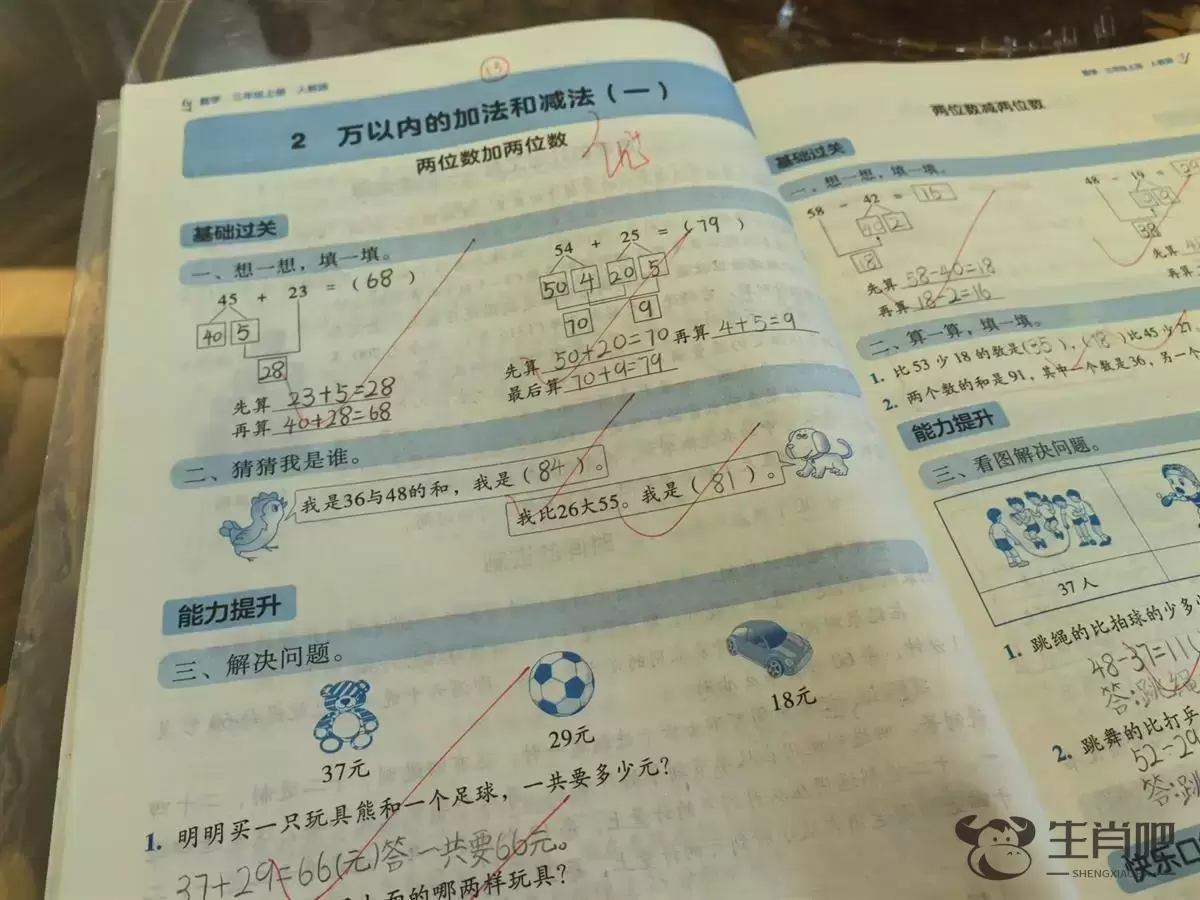 数学 三年级上册 人教版
13
2 万以内的加法和减法（一）
两位数加两位数
基础过关
一、想一想，填一填。
45 + 23 = (68)
40 5
28
先算 23+5=28
再算 40+28=68
54 + 25 = (79)
50 4 20 5
70 9
先算 50+20=70 再算 4+5=9
最后算 70+9=79
二、猜猜我是谁。
我是36与48的和，我是(84)。
我比26大55。我是(81)。
能力提升
三、解决问题。
37元
29元
18元
1. 明明买一只玩具熊和一个足球，一共要多少元？
37+29=66(元)答:一共要66元。
面的哪两样玩具？
数学 三年级上册 人教版
两位数减两位数
基础过关
一、想一想，填一填。
58 - 42 = 16
40 2
18
先算 58-40=18
再算 18-2=16
48 - 19 =
38
先算
再算
二、算一算，填一填。
1. 比53少18的数是(35)，(18)比45少27。
2. 两个数的和是91，其中一个数是36，另一个
能力提升
三、看图解决问题。
37人
1. 跳绳的比拍球的少多少
48-37=11
答:跳绳
2. 跳舞的比打乒
52-29
答:跳
快乐口
生肖吧
SHENGXIAO